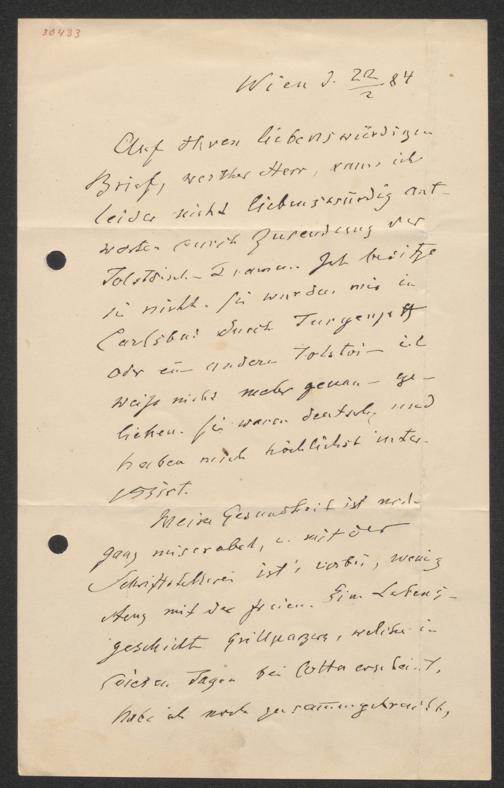 30433
Wien d. 22/2 84
Auf Ihren liebenswürdigen
Brief, werther Herr, kann ich
leider nicht liebenswürdig ant-
worten durch Zusendung der
Tolstoischen Dramen. Ich besitze
sie nicht. Sie wurden mir in
Carlsbad durch Turgenjeff
oder ein andern Tolstoi – ich
weiß nicht mehr genau – ge-
liehen. Sie waren deutsch, und
haben mich höchlichst inter-
essirt.
Meine Gesundheit ist noch
ganz miserabel, u. mit der
Schriftstellerei ist's vorbei, wenig
stens mit der freien. Eine Lebens-
geschichte Grillparzers, welche in
diesen Tagen bei Cotta erscheint,
habe ich noch zusammengebracht,